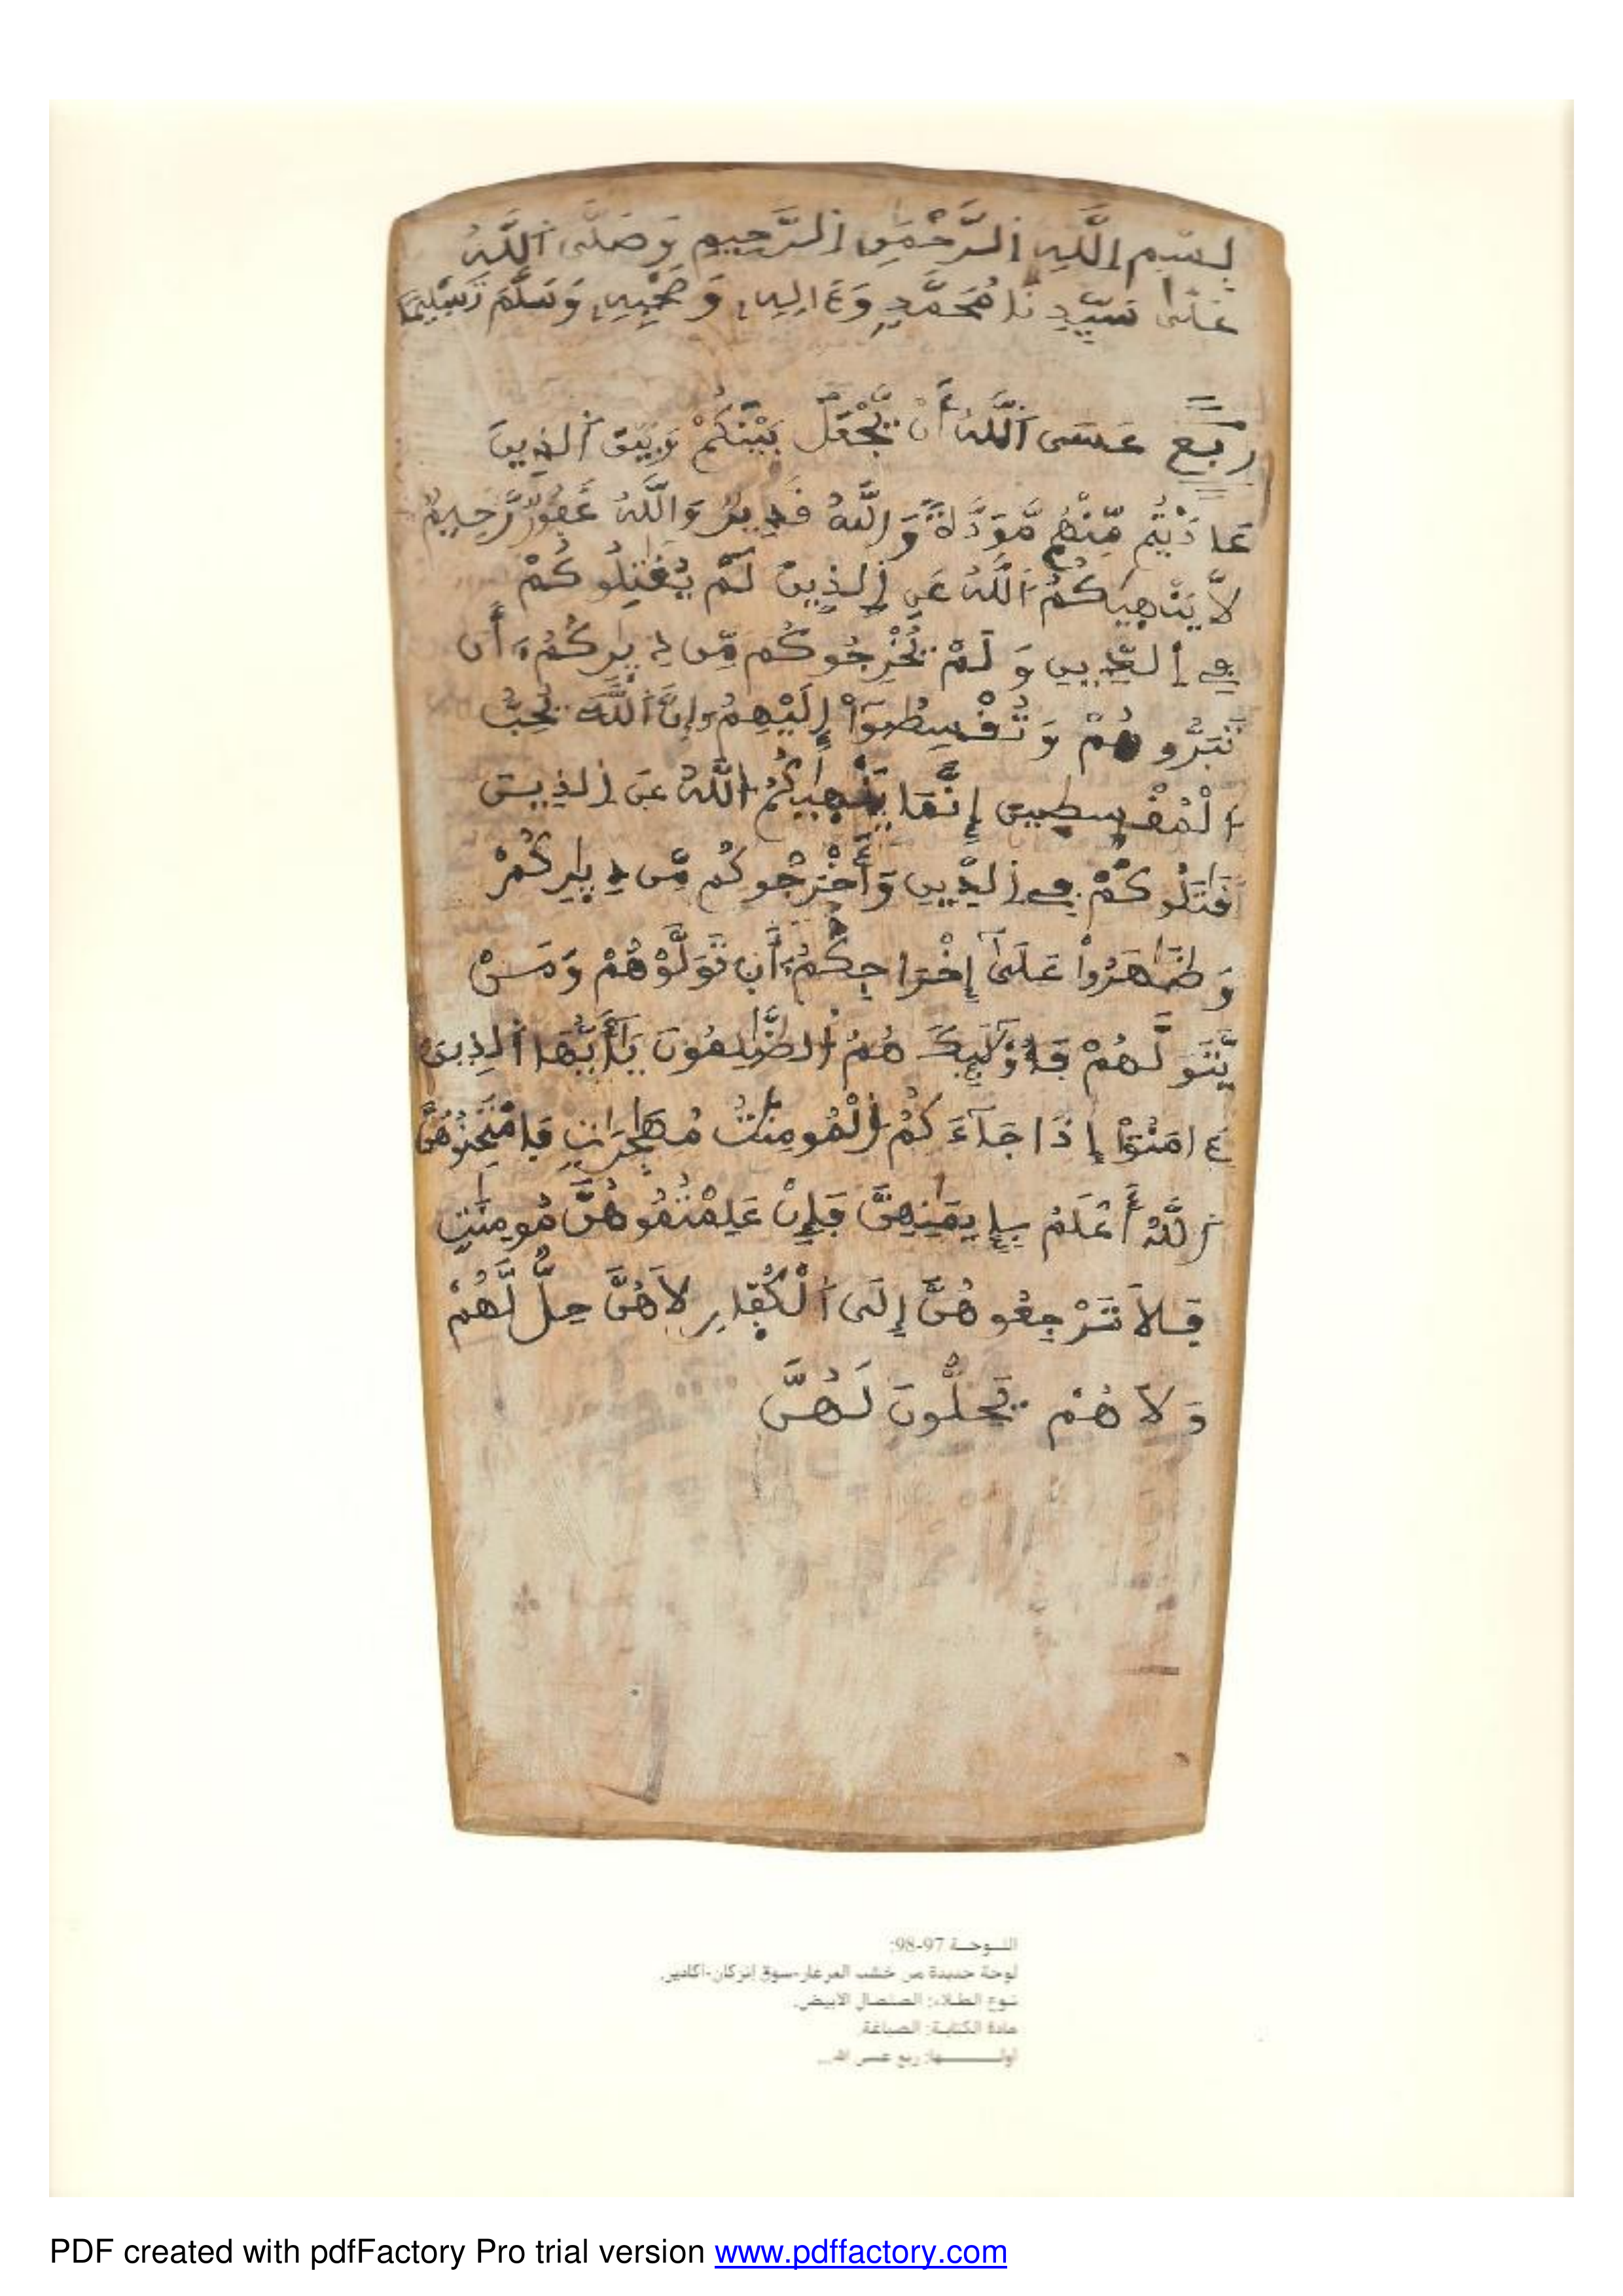 بِسْمِ اللَّهِ الرَّحْمَٰنِ الرَّحِيمِ وَصَلَّى اللَّهُ
عَلَىٰ سَيِّدِنَا مُحَمَّدٍ وَءَالِهِ وَصَحْبِهِ وَسَلَّمَ تَسْلِيمًا
رُبُع عَسَى اَللَّهُ أَنْ يَّجْعَلَ بَيْنَكُمْ وَبَيْنَ اَلذِينَ
عَادَيْتُم مِّنْهُم مَّوَدَّةً وَاللَّهُ قَدِيرٌ وَاللَّهُ غَفُورٌ رَّحِيمٌ
لَّا يَنْهَيٰكُمُ اُللَّهُ عَنِ اِلذِينَ لَمْ يُقَٰتِلُوكُمْ
فِے اِلدِّينِ وَلَمْ يُخْرِجُوكُم مِّن دِيٰرِكُمُۥ أَن
تَبَرُّوهُمْ وَتُقْسِطُوٓاْ إِلَيْهِمُۥ إِنَّ اَللَّهَ يُحِبُّ
اُلْمُقْسِطِينَ إِنَّمَا يَنْهَيٰكُمُ اُللَّهُ عَنِ اِلذِينَ
قَٰتَلُوكُمْ فِے اِلدِّينِ وَأَخْرَجُوكُم مِّن دِيٰرِكُمْ
وَظَٰهَرُواْ عَلَىٰٓ إِخْرَاجِكُمُۥ أَن تَوَلَّوْهُمْ وَمَنْ
يَّتَوَلَّهُمْ فَأُوْلَٰٓئِكَ هُمُ اُلظَّٰلِمُونَ يَٰٓأَيُّهَا اَلذِينَ
ءَامَنُوٓاْ إِذَا جَآءَكُمُ اُلْمُومِنَٰتُ مُهَٰجِرَٰتٍ فَامْتَحِنُوهُنَّ
اُللَّهُ أَعْلَمُ بِإِيمَٰنِهِنَّ فَإِنْ عَلِمْتُمُوهُنَّ مُومِنَٰتٍ
فَلَا تَرْجِعُوهُنَّ إِلَى اَلْكُفّ۪ارِ لَا هُنَّ حِلٌّ لَّهُمْ
وَلَا هُمْ يَحِلُّونَ لَهُنَّ
اللوحة 97-98:
لوحة جديدة من خشب العرعار-سوق إنزكان-أكادير.
نوع الطلاء: الصلصال الأبيض.
مادة الكتابة: الصباغة
أولـــها: ربع عسى الله...
PDF created with pdfFactory Pro trial version www.pdffactory.com